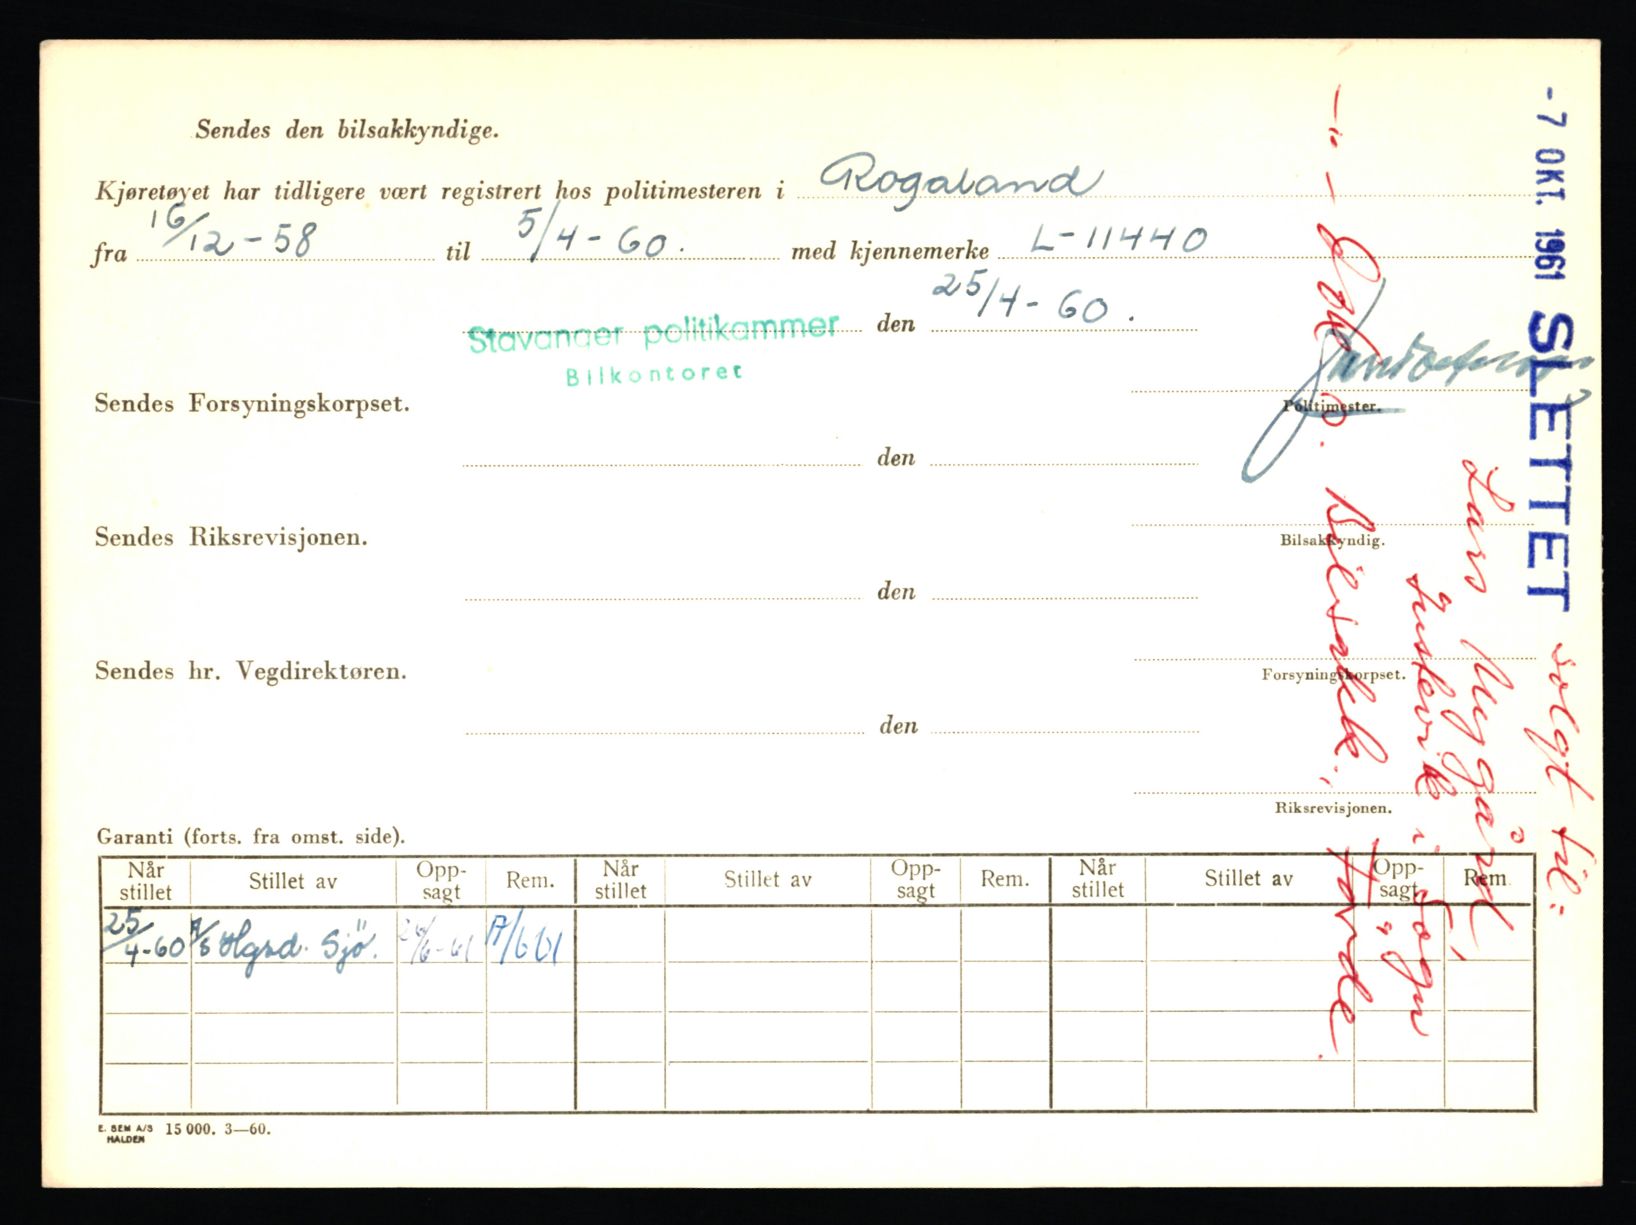 Sendes den bilsakkyndige.
Kjøretøyet har tidligere vært registrert hos politimesteren i Rogaland
fra 16/12-58 til 5/4-60. med kjennemerke L-11440
Stavanger politikammer den 25/4-60.
Bilkontoret
Politimester.
Sendes Forsyningskorpset.
den
Bilsakkyndig.
Sendes Riksrevisjonen.
den
Forsyningskorpset.
Sendes hr. Vegdirektøren.
den
Riksrevisjonen.
Garanti (forts. fra omst. side).
Når stillet Stillet av Opp-sagt Rem. Når stillet Stillet av Opp-sagt Rem. Når stillet Stillet av Opp-sagt Rem
25/4-60 A/S Hgsd. Sjö. 26/6-61 A/661
E. SEM A/S HALDEN 15 000. 3—60.
- 7 OKT. 1961 SLETTET solgt til:
Lars Nygård,
i Sogn
Bilsakk., Horde.